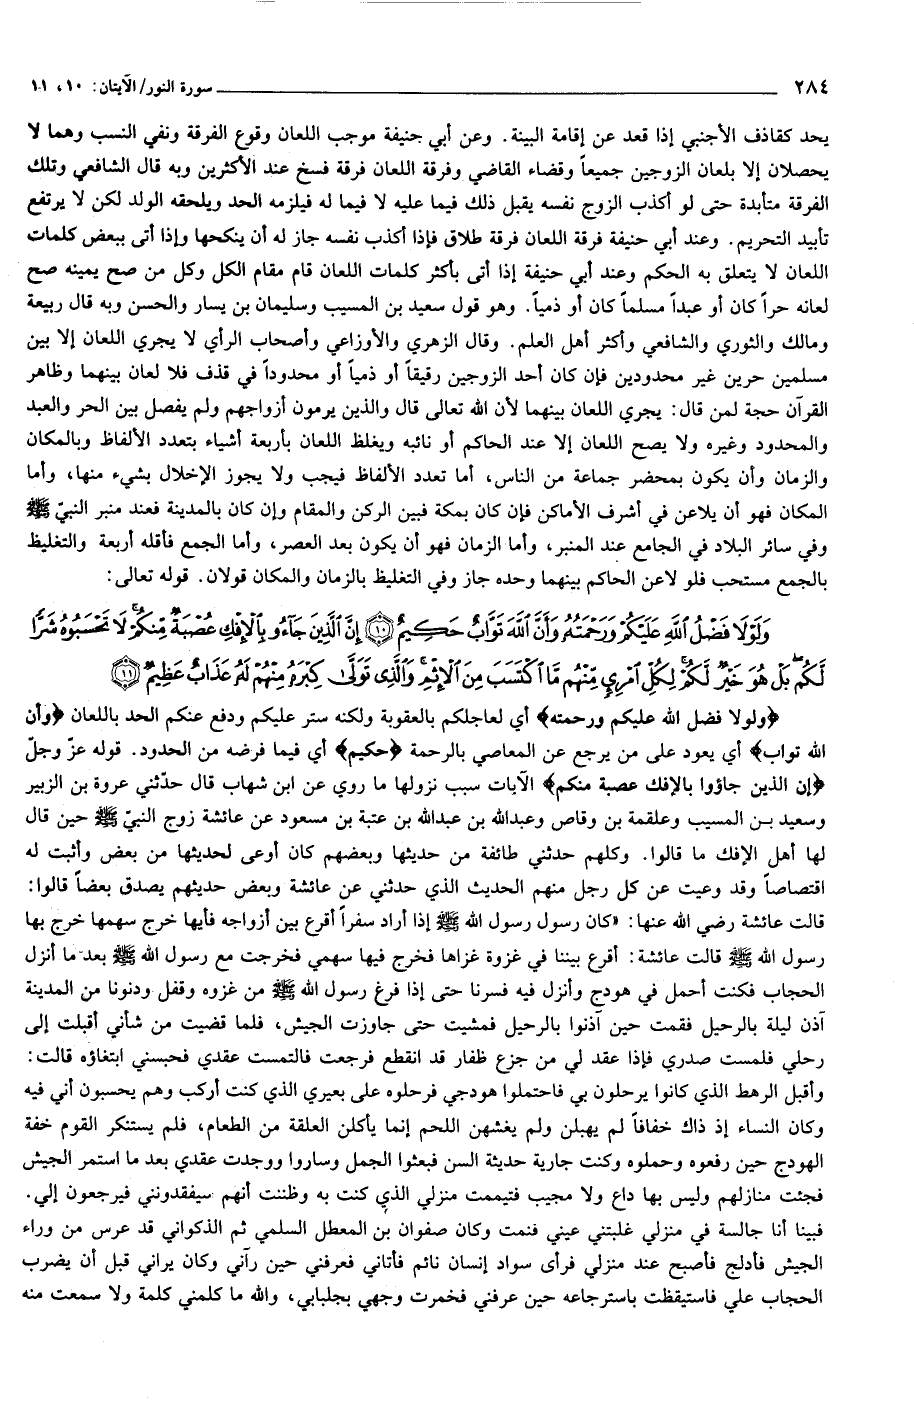 ٢٨٤ سورة النور/ الآيتان: ١٠، ١١
يحد كقاذف الأجنبي إذا قعد عن إقامة البينة. وعن أبي حنيفة موجب اللعان وقوع الفرقة ونفي النسب وهما لا
يحصلان إلا بلعان الزوجين جميعاً وقضاء القاضي وفرقة اللعان فرقة فسخ عند الأكثرين وبه قال الشافعي وتلك
الفرقة متأبدة حتى لو أكذب الزوج نفسه يقبل ذلك فيما عليه لا فيما له فيلزمه الحد ويلحقه الولد لكن لا يرتفع
تأبيد التحريم. وعند أبي حنيفة فرقة اللعان فرقة طلاق فإذا أكذب نفسه جاز له أن ينكحها وإذا أتى ببعض كلمات
اللعان لا يتعلق به الحكم وعند أبي حنيفة إذا أتى بأكثر كلمات اللعان قام مقام الكل وكل من صح يمينه صح
لعانه حراً كان أو عبداً مسلماً كان أو ذمياً. وهو قول سعيد بن المسيب وسليمان بن يسار والحسن وبه قال ربيعة
ومالك والثوري والشافعي وأكثر أهل العلم. وقال الزهري والأوزاعي وأصحاب الرأي لا يجري اللعان إلا بين
مسلمين حرين غير محدودين فإن كان أحد الزوجين رقيقاً أو ذمياً أو محدوداً في قذف فلا لعان بينهما وظاهر
القرآن حجة لمن قال: يجري اللعان بينهما لأن الله تعالى قال والذين يرمون أزواجهم ولم يفصل بين الحر والعبد
والمحدود وغيره ولا يصح اللعان إلا عند الحاكم أو نائبه ويغلظ اللعان بأربعة أشياء بتعدد الألفاظ وبالمكان
والزمان وأن يكون بمحضر جماعة من الناس، أما تعدد الألفاظ فيجب ولا يجوز الإخلال بشيء منها، وأما
المكان فهو أن يلاعن في أشرف الأماكن فإن كان بمكة فبين الركن والمقام وإن كان بالمدينة فعند منبر النبيّ ﷺ
وفي سائر البلاد في الجامع عند المنبر، وأما الزمان فهو أن يكون بعد العصر، وأما الجمع فأقله أربعة والتغليظ
بالجمع مستحب فلو لاعن الحاكم بينهما وحده جاز وفي التغليظ بالزمان والمكان قولان. قوله تعالى:
وَلَوْلَا فَضْلُ ٱللَّهِ عَلَيْكُمْ وَرَحْمَتُهُۥ وَأَنَّ ٱللَّهَ تَوَّابٌ حَكِيمٌ ﴿١٠﴾ إِنَّ ٱلَّذِينَ جَآءُو بِٱلْإِفْكِ عُصْبَةٌ مِّنكُمْ ۚ لَا تَحْسَبُوهُ شَرًّا
لَّكُم ۖ بَلْ هُوَ خَيْرٌ لَّكُمْ ۚ لِكُلِّ ٱمْرِئٍ مِّنْهُم مَّا ٱكْتَسَبَ مِنَ ٱلْإِثْمِ ۚ وَٱلَّذِى تَوَلَّىٰ كِبْرَهُۥ مِنْهُمْ لَهُۥ عَذَابٌ عَظِيمٌ ﴿١١﴾
﴿ولولا فضل الله عليكم ورحمته﴾ أي لعاجلكم بالعقوبة ولكنه ستر عليكم ودفع عنكم الحد باللعان ﴿وأن
الله تواب﴾ أي يعود على من يرجع عن المعاصي بالرحمة ﴿حكيم﴾ أي فيما فرضه من الحدود. قوله عزّ وجلّ
﴿إن الذين جاؤوا بالإفك عصبة منكم﴾ الآيات سبب نزولها ما روي عن ابن شهاب قال حدّثني عروة بن الزبير
وسعيد بن المسيب وعلقمة بن وقاص وعبدالله بن عبدالله بن عتبة بن مسعود عن عائشة زوج النبيّ ﷺ حين قال
لها أهل الإفك ما قالوا. وكلهم حدثني طائفة من حديثها وبعضهم كان أوعى لحديثها من بعض وأثبت له
اقتصاصاً وقد وعيت عن كل رجل منهم الحديث الذي حدثني عن عائشة وبعض حديثهم يصدق بعضاً قالوا:
قالت عائشة رضي الله عنها: «كان رسول رسول الله ﷺ إذا أراد سفراً أقرع بين أزواجه فأيها خرج سهمها خرج بها
رسول الله ﷺ قالت عائشة: أقرع بيننا في غزوة غزاها فخرج فيها سهمي فخرجت مع رسول الله ﷺ بعد ما أنزل
الحجاب فكنت أحمل في هودج وأنزل فيه فسرنا حتى إذا فرغ رسول الله ﷺ من غزوه وقفل ودنونا من المدينة
آذن ليلة بالرحيل فقمت حين آذنوا بالرحيل فمشيت حتى جاوزت الجيش، فلما قضيت من شأني أقبلت إلى
رحلي فلمست صدري فإذا عقد لي من جزع ظفار قد انقطع فرجعت فالتمست عقدي فحبسني ابتغاؤه قالت:
وأقبل الرهط الذي كانوا يرحلون بي فاحتملوا هودجي فرحلوه على بعيري الذي كنت أركب وهم يحسبون أني فيه
وكان النساء إذ ذاك خفافاً لم يهبلن ولم يغشهن اللحم إنما يأكلن العلقة من الطعام، فلم يستنكر القوم خفة
الهودج حين رفعوه وحملوه وكنت جارية حديثة السن فبعثوا الجمل وساروا ووجدت عقدي بعد ما استمر الجيش
فجئت منازلهم وليس بها داع ولا مجيب فتيممت منزلي الذي كنت به وظننت أنهم سيفقدونني فيرجعون إلي.
فبينا أنا جالسة في منزلي غلبتني عيني فنمت وكان صفوان بن المعطل السلمي ثم الذكواني قد عرس من وراء
الجيش فأدلج فأصبح عند منزلي فرأى سواد إنسان نائم فأتاني فعرفني حين رآني وكان يراني قبل أن يضرب
الحجاب علي فاستيقظت باسترجاعه حين عرفني فخمرت وجهي بجلبابي، والله ما كلمني كلمة ولا سمعت منه